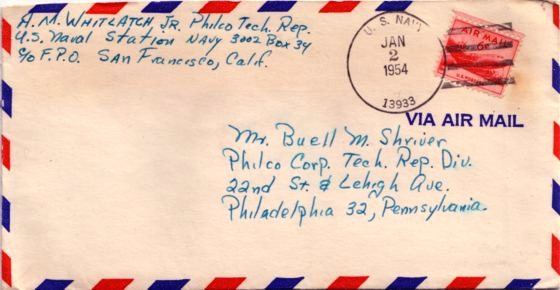 A. M. WHITLATCH JR. Philco Tech. Rep.
U.S. Naval Station NAVY 3002 Box 34
c/o F.P.O. San Francisco, Calif.
U. S. NAVY
JAN
2
1954
13933
AIR MAIL
6¢
VIA AIR MAIL
Mr. Buell M. Shriver
Philco Corp. Tech. Rep. Div.
22nd St. & Lehigh Ave.
Philadelphia 32, Pennsylvania.